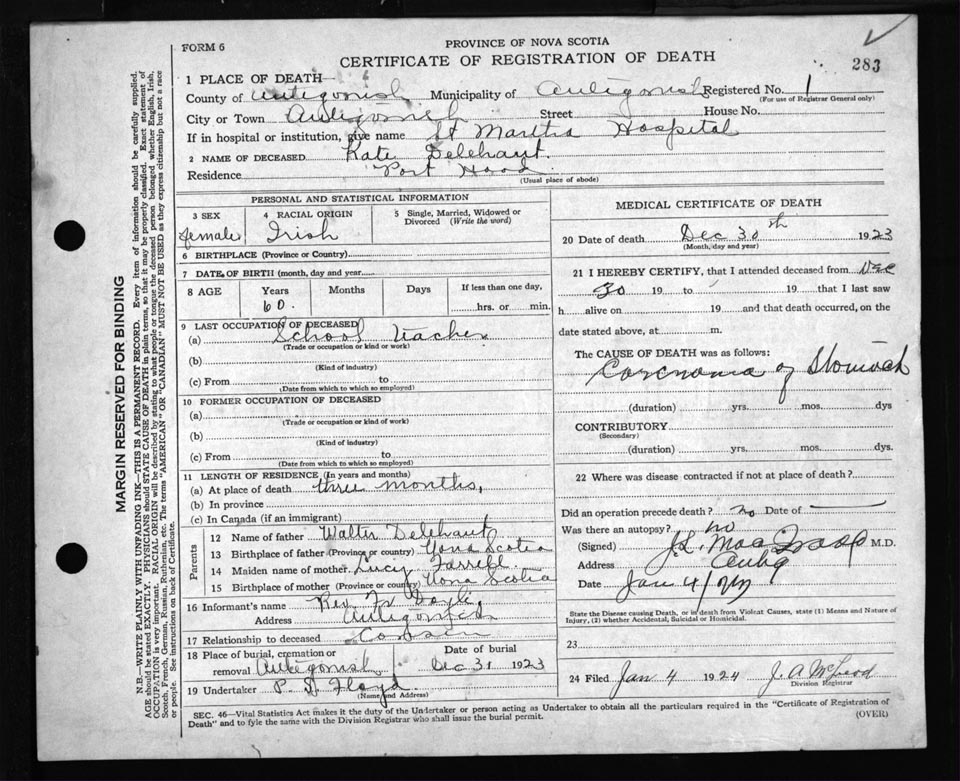 FORM 6
PROVINCE OF NOVA SCOTIA
CERTIFICATE OF REGISTRATION OF DEATH
283
1 PLACE OF DEATH—
County of Antigonish Municipality of Antigonish Registered No. 1
(For use of Registrar General only)
City or Town Antigonish Street House No.
If in hospital or institution, give name St Martha Hospital
2 NAME OF DECEASED Kate Delehant.
Residence Port Hood
(Usual place of abode)
PERSONAL AND STATISTICAL INFORMATION
3 SEX 4 RACIAL ORIGIN 5 Single, Married, Widowed or
Divorced (Write the word)
female Irish
6 BIRTHPLACE (Province or Country)
7 DATE OF BIRTH (month, day and year)
8 AGE Years Months Days If less than one day,
60. hrs. or min.
9 LAST OCCUPATION OF DECEASED
(a) School Teacher
(Trade or occupation or kind or work)
(b)
(Kind of industry)
(c) From to
(Date from which to which so employed)
10 FORMER OCCUPATION OF DECEASED
(a)
(Trade or occupation or kind of work)
(b)
(Kind of industry)
(c) From to
(Date from which to which so employed)
11 LENGTH OF RESIDENCE (In years and months)
(a) At place of death three months,
(b) In province
(c) In Canada (if an immigrant)
Parents
12 Name of father Walter Delehant
13 Birthplace of father (Province or country) Nova Scotia
14 Maiden name of mother Lucy Farrell
15 Birthplace of mother (Province or country) Nova Scotia
16 Informant's name Rev. Fr
Address Antigonish
17 Relationship to deceased Cousin
18 Place of burial, cremation or Date of burial
removal Antigonish Dec 31 1923
19 Undertaker P. S. Floyd
(Name and Address)
MEDICAL CERTIFICATE OF DEATH
20 Date of death Dec 30th 1923
(Month, day and year)
21 I HEREBY CERTIFY, that I attended deceased from Dec
30 19 to 19 that I last saw
h alive on 19 and that death occurred, on the
date stated above, at m.
The CAUSE OF DEATH was as follows:
Carcnoma of Stomach
(duration) yrs. mos. dys
CONTRIBUTORY
(Secondary)
(duration) yrs. mos. dys.
22 Where was disease contracted if not at place of death?
Did an operation precede death? no Date of —
Was there an autopsy? no
(Signed) M.D.
Address Antig
Date Jan 4/
State the Disease causing Death, or in death from Violent Causes, state (1) Means and Nature of
Injury, (2) whether Accidental, Suicidal or Homicidal.
23
24 Filed Jan 4 1924 J. A. McLeod
Division Registrar
SEC. 46—Vital Statistics Act makes it the duty of the Undertaker or person acting as Undertaker to obtain all the particulars required in the "Certificate of Registration of
Death" and to fyle the same with the Division Registrar who shall issue the burial permit.
(OVER)
MARGIN RESERVED FOR BINDING
N.B.—WRITE PLAINLY WITH UNFADING INK—THIS IS A PERMANENT RECORD. Every item of information should be carefully supplied.
AGE should be stated EXACTLY. PHYSICIANS should STATE CAUSE OF DEATH in plain terms, so that it may be properly classified. Exact statement of
OCCUPATION is very important. RACIAL ORIGIN will be described by stating to what people or tongue the deceased person belonged whether English, Irish,
Scotch, French, German, Russian, Ruthenian, etc. The terms "AMERICAN" OR "CANADIAN" MUST NOT BE USED as they express citizenship but not a race
or people. See instructions on back of Certificate.